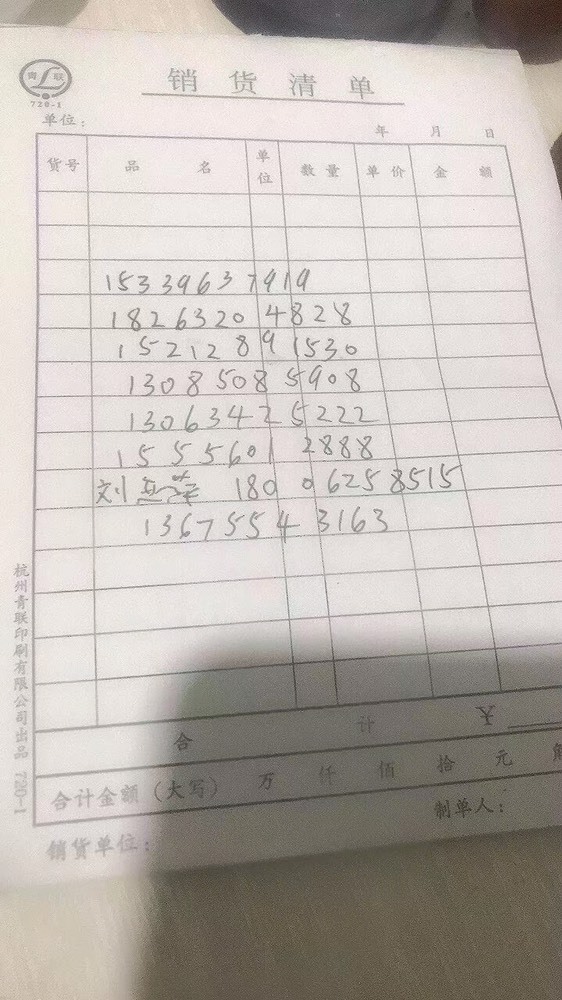 青 联
720-1
销货清单
单位:
年 月 日
货号 品名 单位 数量 单价 金额
15339637919
18263204828
15212891530
13085085908
13063425222
15556012888
刘 18006258515
13675543163
合计 ¥
合计金额(大写) 万 仟 佰 拾 元
制单人:
销货单位:
杭州青联印刷有限公司出品 720-1